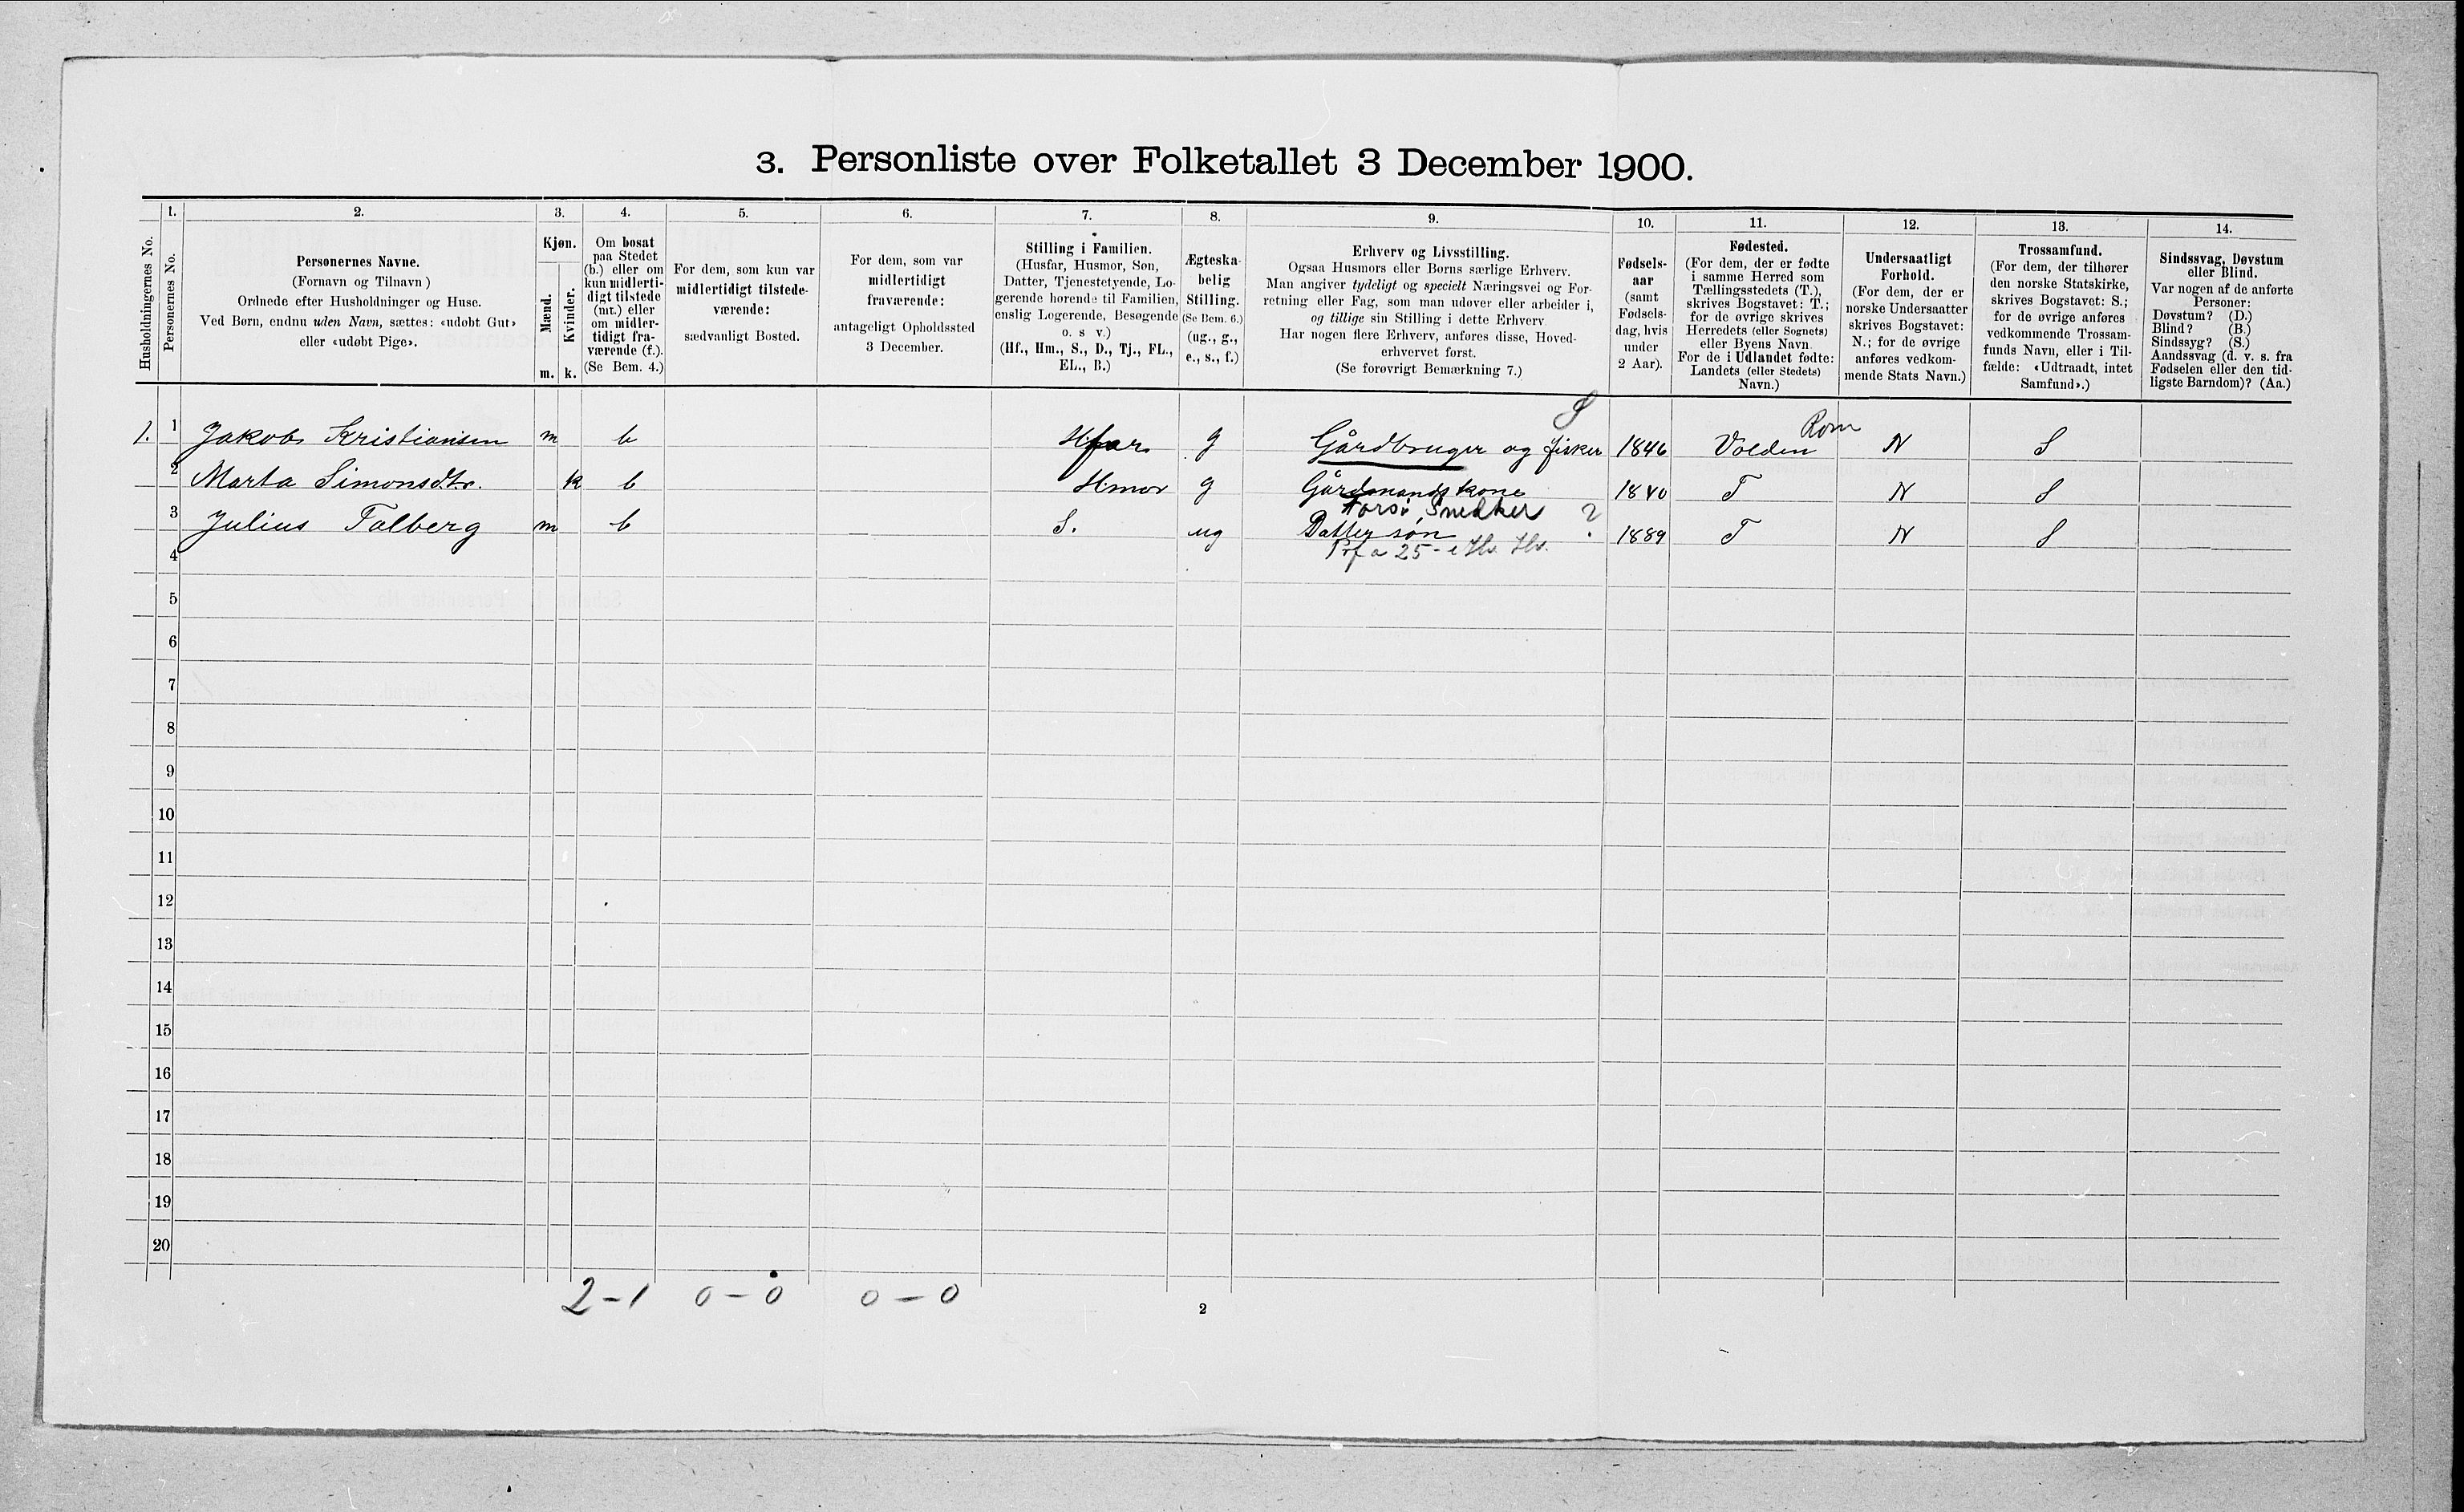 3. Personliste over Folketallet 3 December 1900.
Husholdningernes No.
1.
Personernes No.
2.
Personernes Navne.
(Fornavn og Tilnavn)
Ordnede efter Husholdninger og Huse.
Ved Børn, endnu uden Navn, sættes: «udøbt Gut»
eller «udøbt Pige».
3.
Kjøn.
Mænd.
Kvinder.
m. k.
4.
Om bosat
paa Stedet
(b.) eller om
kun midlerti-
digt tilstede
(mt.) eller
om midler-
tidigt fra-
værende (f.).
(Se Bem. 4.)
5.
For dem, som kun var
midlertidigt tilstede-
værende:
sædvanligt Bosted.
6.
For dem, som var
midlertidigt
fraværende:
antageligt Opholdssted
3 December.
7.
Stilling i Familien.
(Husfar, Husmor, Søn,
Datter, Tjenestetyende, Lo-
gerende hørende til Familien,
enslig Logerende, Besøgende
o. s v.)
(Hf., Hm., S., D., Tj., FL.,
EL., B.)
8.
Ægteska-
belig
Stilling.
(Se Bem. 6.)
(ug., g.,
e., s., f.)
9.
Erhverv og Livsstilling.
Ogsaa Husmors eller Børns særlige Erhverv.
Man angiver tydeligt og specielt Næringsvei og For-
retning eller Fag, som man udøver eller arbeider i,
og tillige sin Stilling i dette Erhverv
Har nogen flere Erhverv, anføres disse, Hoved-
erhvervet først.
(Se forøvrigt Bemærkning 7.)
10.
Fødsels-
aar
(samt
Fødsels-
dag, hvis
under
2 Aar).
11.
Fødested.
(For dem, der er fødte
i samme Herred som
Tællingsstedets (T.),
skrives Bogstavet: T.;
for de øvrige skrives
Herredets (eller Sognets)
eller Byens Navn.
For de i Udlandet fødte:
Landets (eller Stedets)
Navn.)
12.
Undersaatligt
Forhold.
(For dem, der er
norske Undersaatter
skrives Bogstavet:
N.; for de øvrige
anføres vedkom-
mende Stats Navn.)
13.
Trossamfund.
(For dem, der tilhører
den norske Statskirke,
skrives Bogstavet: S.;
for de øvrige anføres
vedkommende Trossam-
funds Navn, eller i Til-
fælde: «Udtraadt, intet
Samfund».)
14.
Sindssvag, Døvstum
eller Blind.
Var nogen af de anførte
Personer:
Døvstum? (D.)
Blind? (B.)
Sindssyg? (S.)
Aandssvag (d. v. s. fra
Fødselen eller den tid-
ligste Barndom)? (Aa.)
1. 1 Jakob Kristiansen m b Hfar g Gårdbruger og fisker 1846 Volden Rom N S
2 Marta Simonsdtr. k b Hmor g Gårdmandskone 1840 T N S
Snedker 2
3 Julius Talberg m b S. ug Dattersøn 1889 T N S
4
5
6
7
8
9
10
11
12
13
14
15
16
17
18
19
20
2-1 0-0 0-0
2